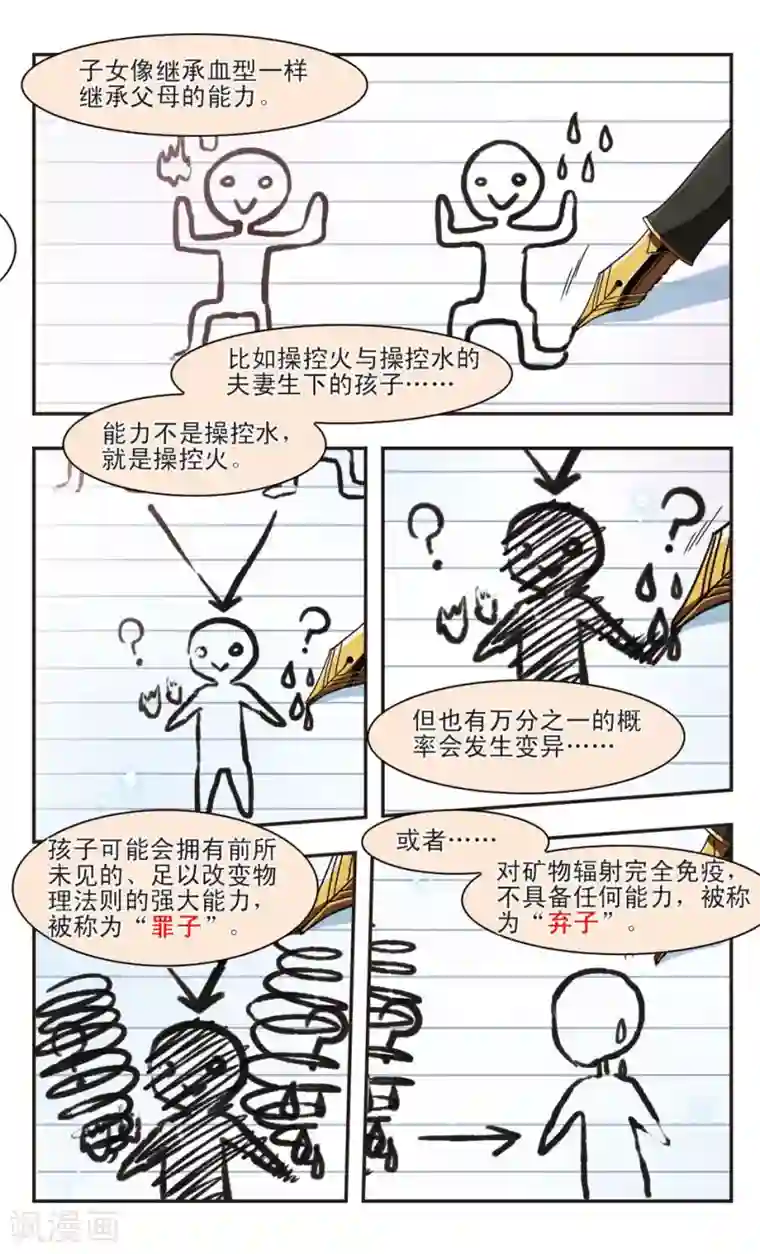 子女像继承血型一样
继承父母的能力。
比如操控火与操控水的
夫妻生下的孩子……
能力不是操控水，
就是操控火。
?
?
?
?
但也有万分之一的概
率会发生变异……
孩子可能会拥有前所
未见的、足以改变物
理法则的强大能力，
被称为“罪子”。
或者……
对矿物辐射完全免疫，
不具备任何能力，被称
为“弃子”。
飒漫画